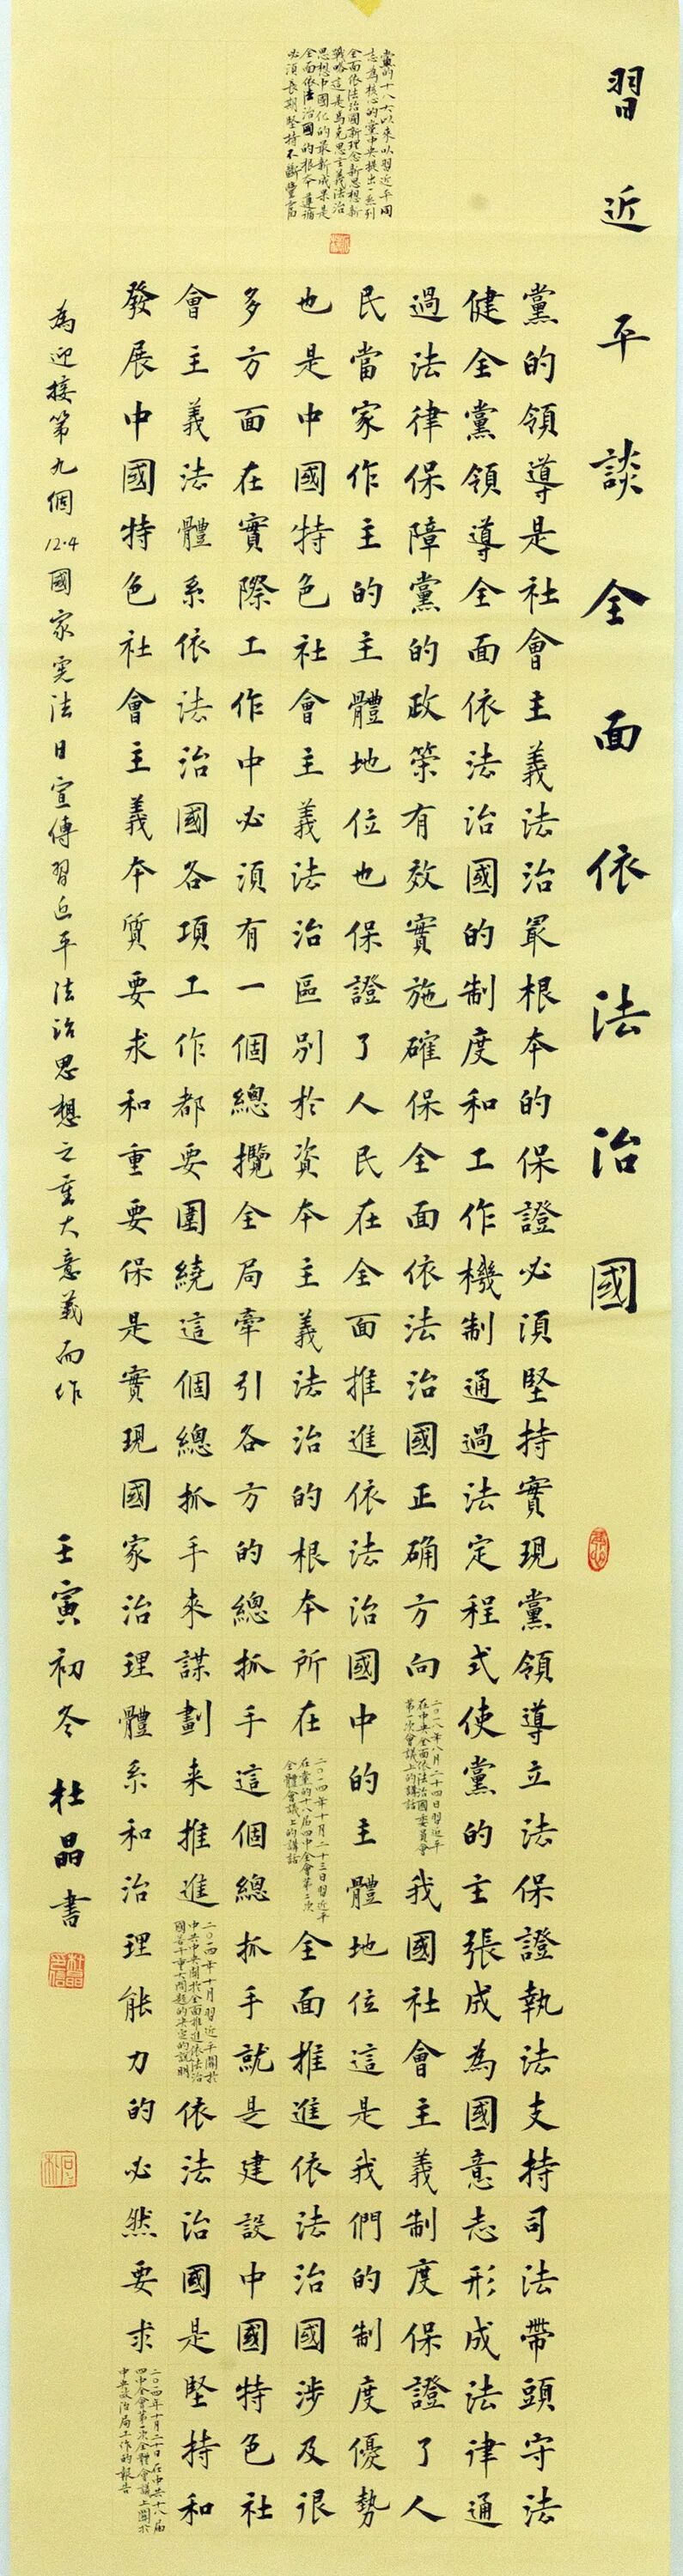 習近平談全面依法治國
黨的十八大以來以習近平同
志為核心的黨中央提出一系列
全面依法治國新理念新思想新
戰略這是馬克思主義法治
思想中國化的最新成果是
全面依法治國的根本遵循
必須長期堅持不斷豐富
黨的領導是社會主義法治最根本的保證必須堅持實現黨領導立法保證執法支持司法帶頭守法
健全黨領導全面依法治國的制度和工作機制通過法定程式使黨的主張成為國意志形成法律通
過法律保障黨的政策有效實施確保全面依法治國正确方向
二〇一八年八月二十四日習近平
在中央全面依法治國委員會
第一次會議上的講話
我國社會主義制度保證了人
民當家作主的主體地位也保證了人民在全面推進依法治國中的主體地位這是我們的制度優勢
也是中國特色社會主義法治區別於資本主義法治的根本所在
二〇一四年十月二十三日習近平
在黨的十八届四中全會第二次
全體會議上的講話
全面推進依法治國涉及很
多方面在實際工作中必須有一個總攬全局牽引各方的總抓手這個總抓手就是建設中國特色社
會主義法體系依法治國各項工作都要圍繞這個總抓手來謀劃来推進
二〇一四年十月習近平關於
中共中央關於全面推進依法治
國若干重大問題的决定的説明
依法治國是堅持和
發展中國特色社會主義本質要求和重要保是實現國家治理體系和治理能力的必然要求
二〇一四年十月二十日在中共十八届
四中全會第一次全體會議上關於
中央政治局工作的報告
為迎接第九個12·4國家宪法日宣傳習近平法治思想之重大意義而作
壬寅初冬 杜晶書